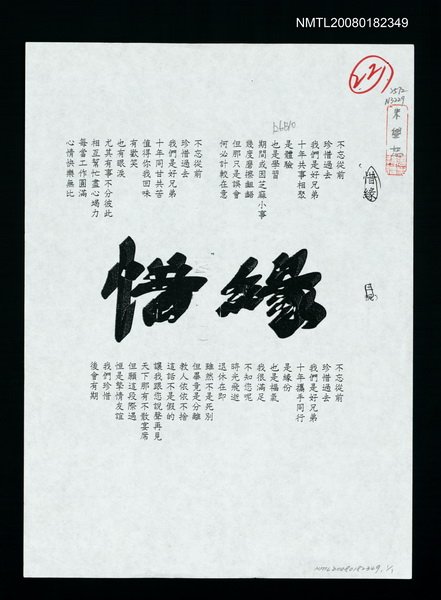 NMTL20080182349
221
惜緣
不忘從前
珍惜過去
我們是好兄弟
十年共事相聚
是體驗
也是學習
期間或因芝麻小事
幾度磨擦齟齬
但那只是誤會
何必計較在意
不忘從前
珍惜過去
我們是好兄弟
十年同甘共苦
值得你我回味
有歡笑
也有眼淚
尤其有事不分彼此
相互幫忙盡心竭力
每當工作圓滿
心情快樂無比
惜緣
不忘從前
珍惜過去
我們是好兄弟
十年攜手同行
是緣份
也是福氣
我很滿足
不知您呢
時光飛逝
退休在即
雖然不是死別
但畢竟是分離
教人依依不捨
這話不是假的
讓我跟您說聲再見
天下那有不散宴席
但願這段際遇
恒是摯情友誼
我們珍惜
後會有期
NMTL20080182349. 1/1